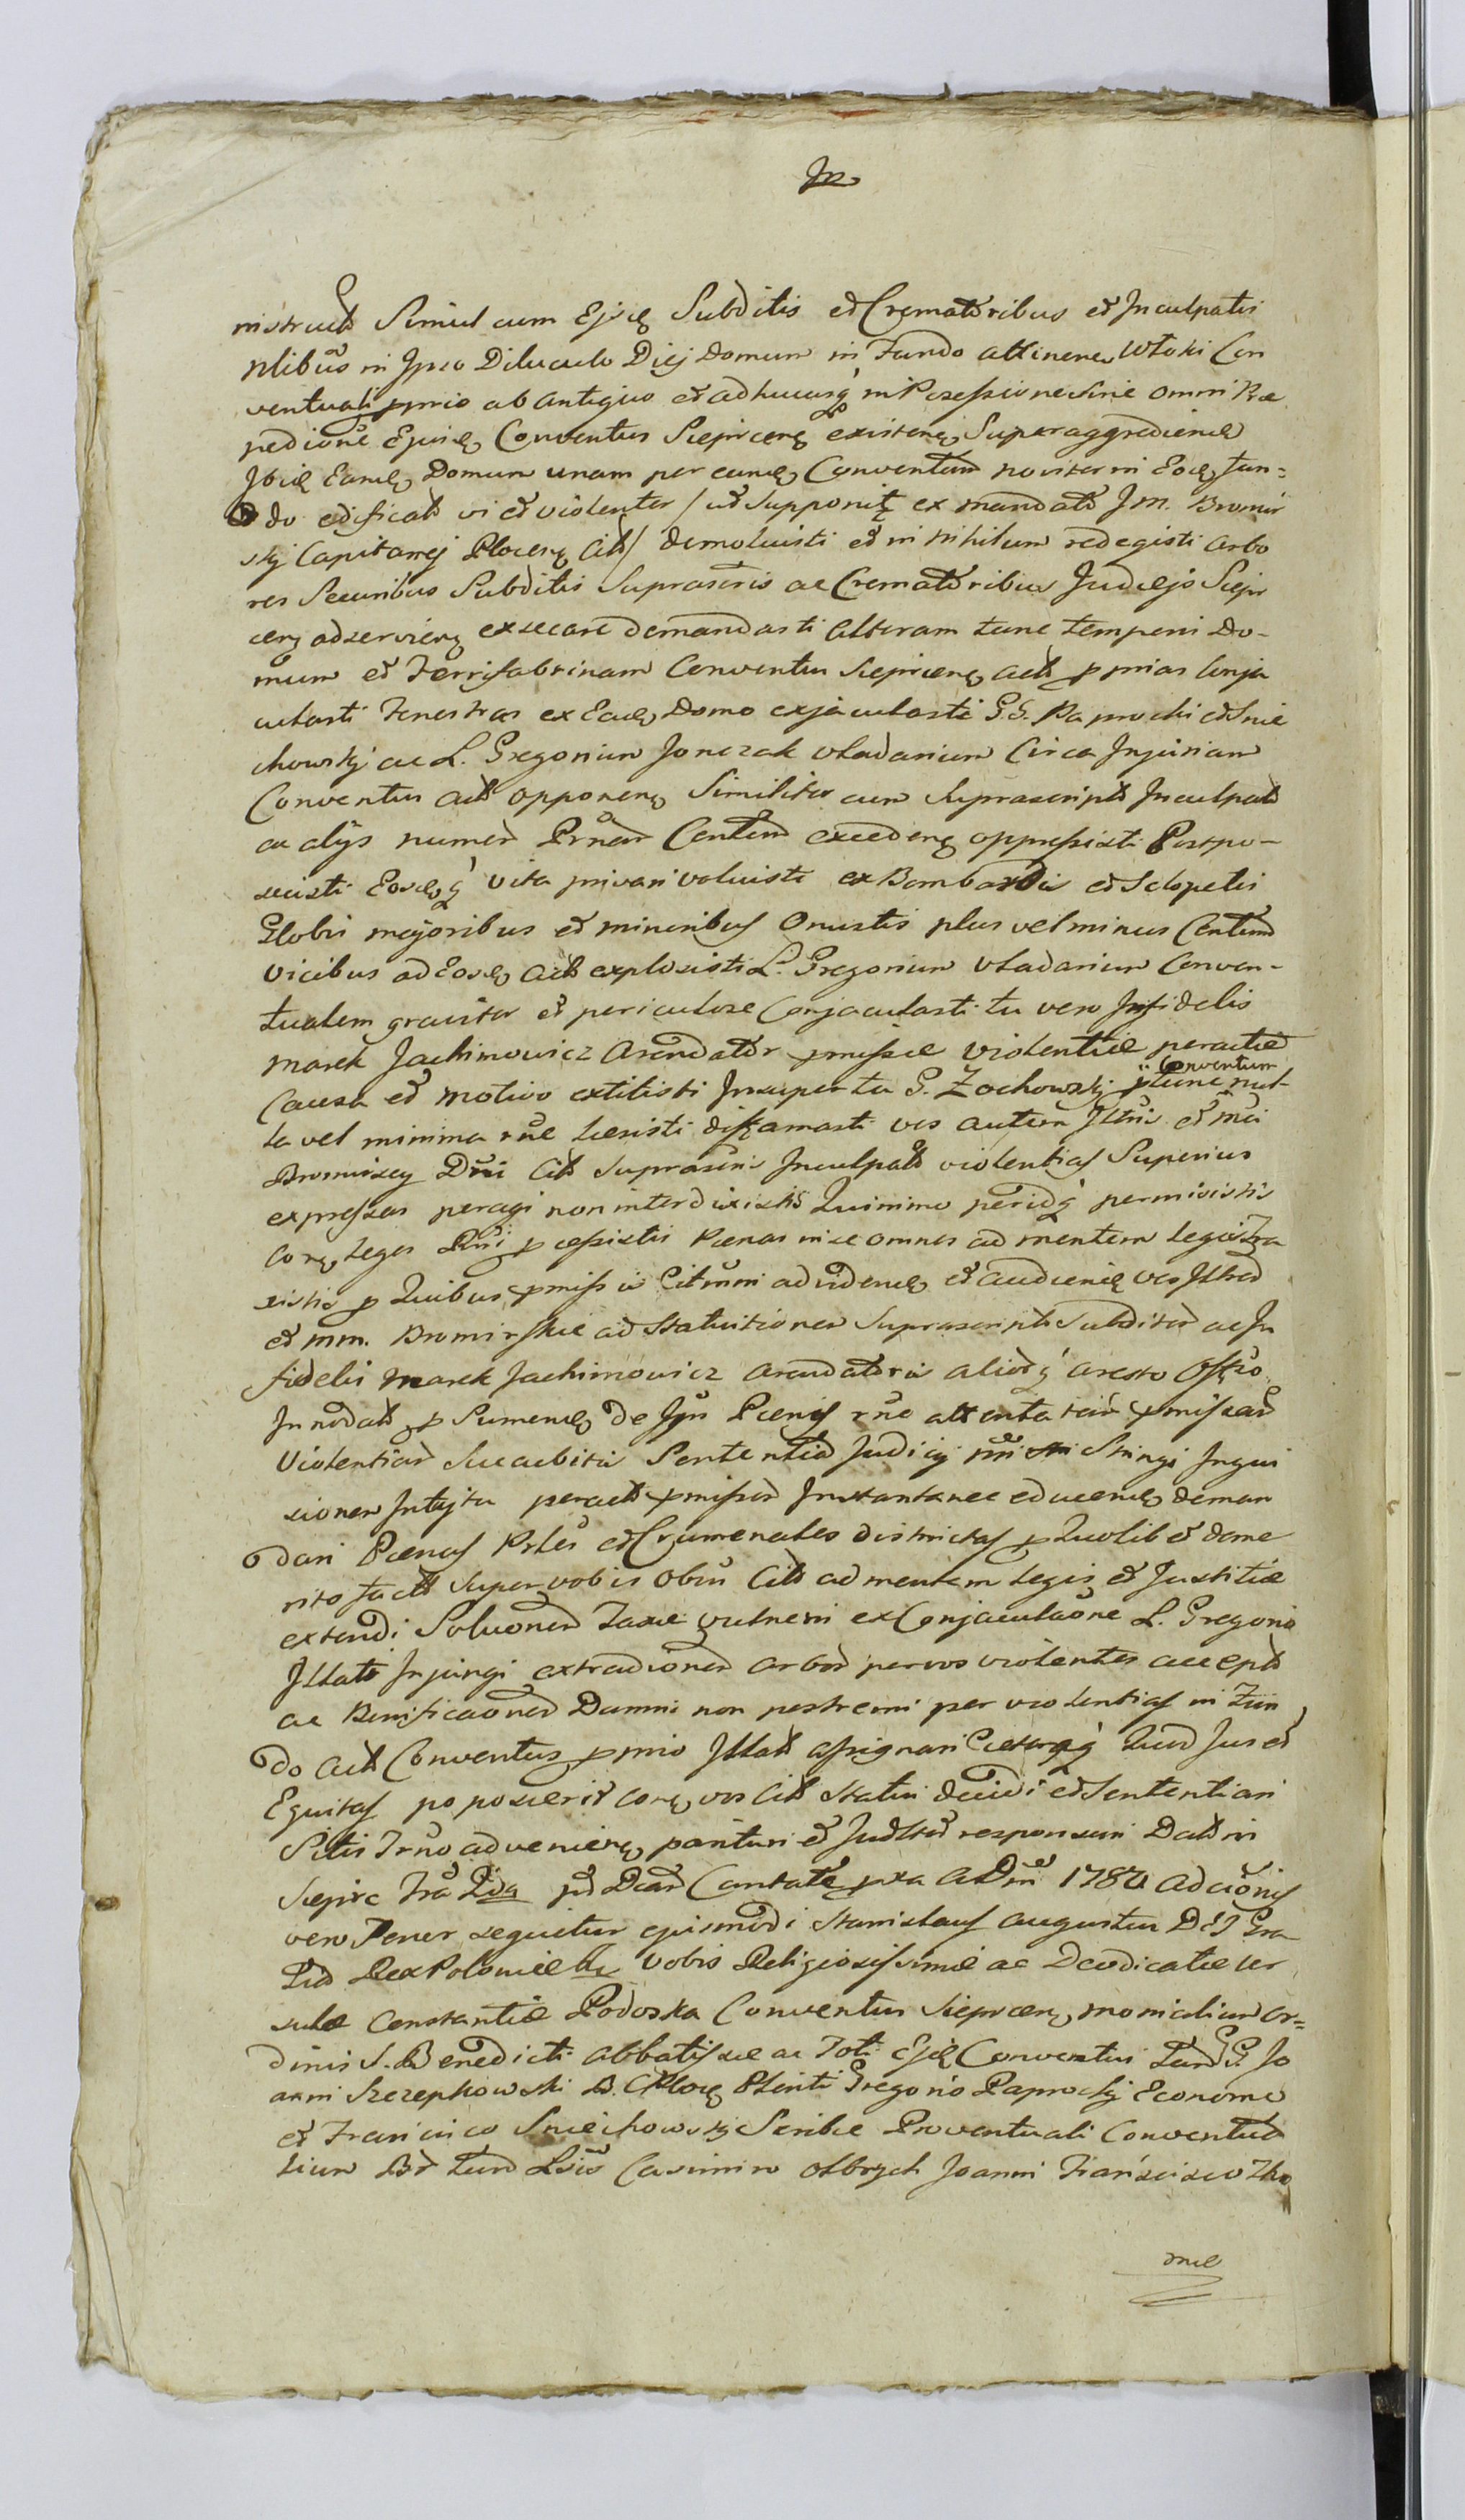 In
nistrata Simul cum Ejusdę Subditis et Crematoribus et Inculpatis
plibus in Ipso Diluculo Diej Domum in Fundo attinenę Włoki Con
ventuali pmio ab antiquo et adhucusq in Possessione Sine omni Præ
peditione Ejusdę Conventus Sieprcenę existenę Superaggrediendę
Ibidę Eandę Domum unam per eundę Conventum noviter in Eodę fun=
do edificatā vi et violenter / ut supponitę ex mandato JM. Bromir
skj Capitanej Plocenę Citti / demoluisti et in nihilum redegisti Arbo
res Securibus Subditis Suprascris ac Crematoribus Judæjo Siepr
cenę adservienę exsecare demandasti Alteram tunc temporis Do-
mum et Ferrifabrinam Conventus Sieprcenę act pmias Conja
culasti Fenestras ex Eadę Domo exjaculasti GG. Paprocki et Snie
chowskj ac L. Gregorium Jonczak Vladarium Circa Injuriam
Conventus act opponenę Similiter cum Suprascript Inculpat
ac alijs numer Prnar Centum excedenę oppressisti Postpo-
suisti Eosdęq vita privari voluisti ex Bombardis et Sclopetis
Globis majoribus et minoribus Onustis plus vel minus Centum
vicibus ad Eosdę act explosisti L. Gregorium Vladarium Conven-
tualem graviter et periculose Conjaculasti tu vero Infidelis
Marek Jachimowicz Arendator pmissæ violentiæ peractæ
Causa et motivo extitisti Insuper tu G. Zochowskj Conventum nul-
la vel minima rne Læsisti diffamasti vos autem Illris et Mci
Bromirscy Dni Citt Suprascris Inculpat violentias Superius
expressas peragi non interdixistis Quinimo peridq permisistis
Conę Leges Rni pcessistis Pœnas in se omnes ad mentem Legis Tra
xistis p Quibus pmissis Citmni ad videndę et audiendę vos Illres
et MM. Bromirskie ad Statuitionem Suprascript Subditor ac In
fidelis Marek Jachimowicz Arendatoris aliorq aresto Offo
Innodat p Sumendę de Ijs Pœnis rne attentatar pmissar
Violentiar Succubitur Sententia Judicij Stringi Inqui
sionem Intuitu peract pmissor Instantanee educendę deman
dari Pœnas Prles et Crumenales districtas p Quolibet deme
rito fact Super vobis Obru Citt ad mentem Legis et Justitiæ
extendi Solvonem Taxæ vulneris ex Conjaculaone L. Gregorio
Illat Injungi extradionem arbor per vos violenter accept
ac Bonificaonem Damni non postremi per violentias in Fun
do act Conventus pmio Illat assignari Cæteraq Quod Jus et
Equitas poposcerit conę vos Citt Statui decidi et Sententiari
Sitis Trno advenienę parituri et Judtr responsuri Dat in
Sieprc Fra 2da pt Dcam Cantate pxa ADni 1784 adcionis
vero Tener sequitur ejusmodi Stanislaus Augustus DEI Gra
Tia Rex Poloniæ &c Vobis Religiosissimæ ac Deodicatæ Ur
sulæ Constantiæ Podoska Conventus Sieprcenę Monialium Or=
dinis S. Benedicti Abbatissæ ac Toti Ejdę Conventui Tand GG. Jo
anni Szczepkowski B. C. Plocę Plenti Gregorio Paprockj Economo
et Francisco Sniechowskj Scribæ Proventuali Conventual
lium Br Tand Lsis Casimiro Olbrych Joanni Franciscio Tho
mæ